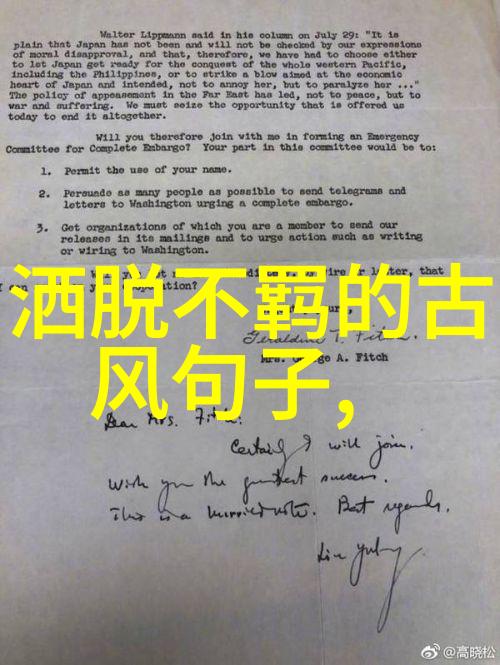 Walter Lippmann said in his column on July 29: "It is
plain that Japan has not been and will not be checked by our expressions
of moral disapproval, and that, therefore, we have had to choose either
to let Japan get ready for the conquest of the whole western Pacific,
including the Philippines, or to strike a blow aimed at the economic
heart of Japan and intended, not to annoy her, but to paralyze her ..."
The policy of appeasement in the Far East has led, not to peace, but to
war and suffering. We must seize the opportunity that is offered us
today to end it altogether.
Will you therefore join with me in forming an Emergency
Committee for Complete Embargo? Your part in this committee would be to:
1. Permit the use of your name.
2. Persuade as many people as possible to send telegrams and
letters to Washington urging a complete embargo.
3. Get organizations of which you are a member to send our
releases in its mailings and to urge action such as writing
or wiring to Washington.
wire or letter, that
洒脱不羁的古
风句子,
Geraldine T. Fitch
Mrs. George A. Fitch
Dear Mrs. Fitch:
Certainly I will join.
Wish you the greatest success.
This is a hurried note. Best regards.
Lin Yutang
@高晓松